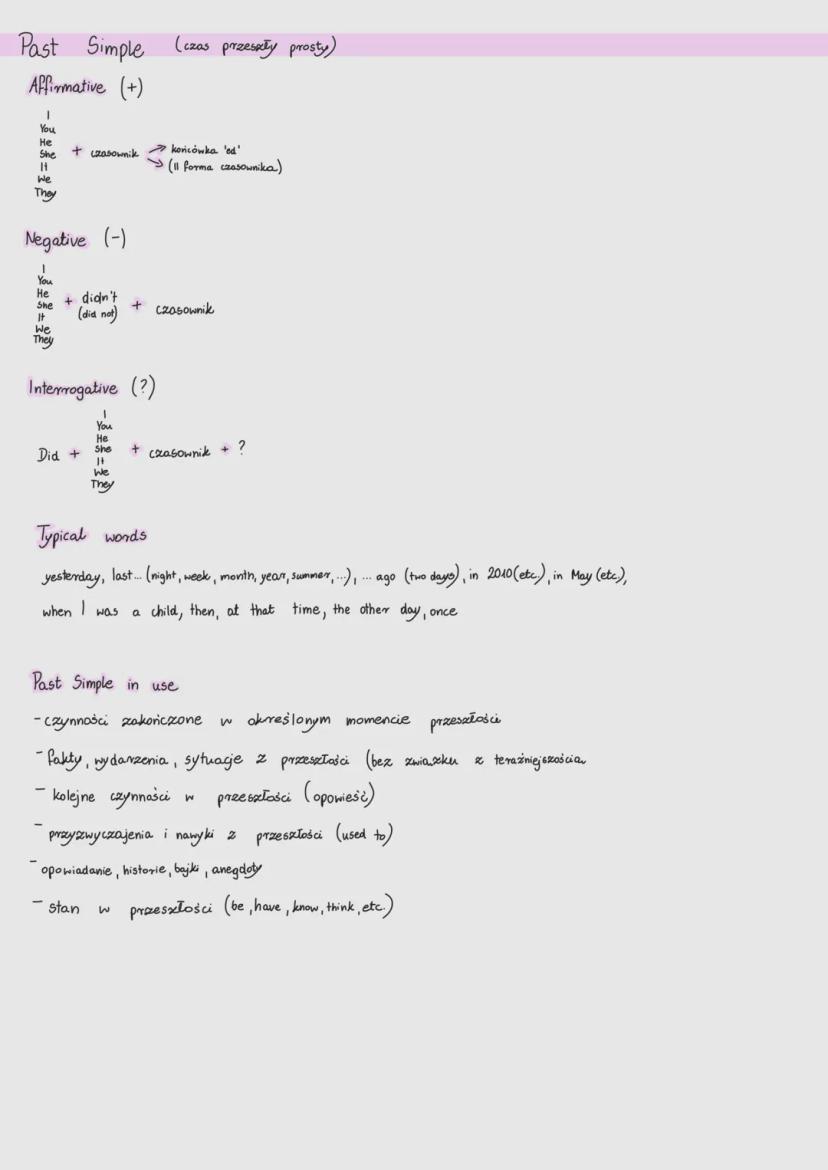 Past Simple (czas przeszły prosty)
Affirmative (+)
I
You
He
She
It
We
They
+ czasownik
końcówka 'ed'
(II forma czasownika)
Negative (-)
I
You
He
She
It
We
They
+ didn't
(did not)
+ czasownik
Interrogative (?)
Did +
I
You
He
She
It
We
They
+ czasownik + ?
Typical words
yesterday, last... (night, week, month, year, summer, ...), ... ago (two days), in 2010 (etc.), in May (etc),
when I was a child, then, at that time, the other day, once
Past Simple in use
- czynności zakończone w określonym momencie przeszłości
- fakty, wydarzenia, sytuacje z przeszłości (bez związku z teraźniejszością
- kolejne czynności w przeszłości (opowieść)
- przyzwyczajenia i nawyki z przeszłości (used to)
- opowiadanie, historie, bajki, anegdoty
- stan w przeszłości (be, have, know, think, etc.)